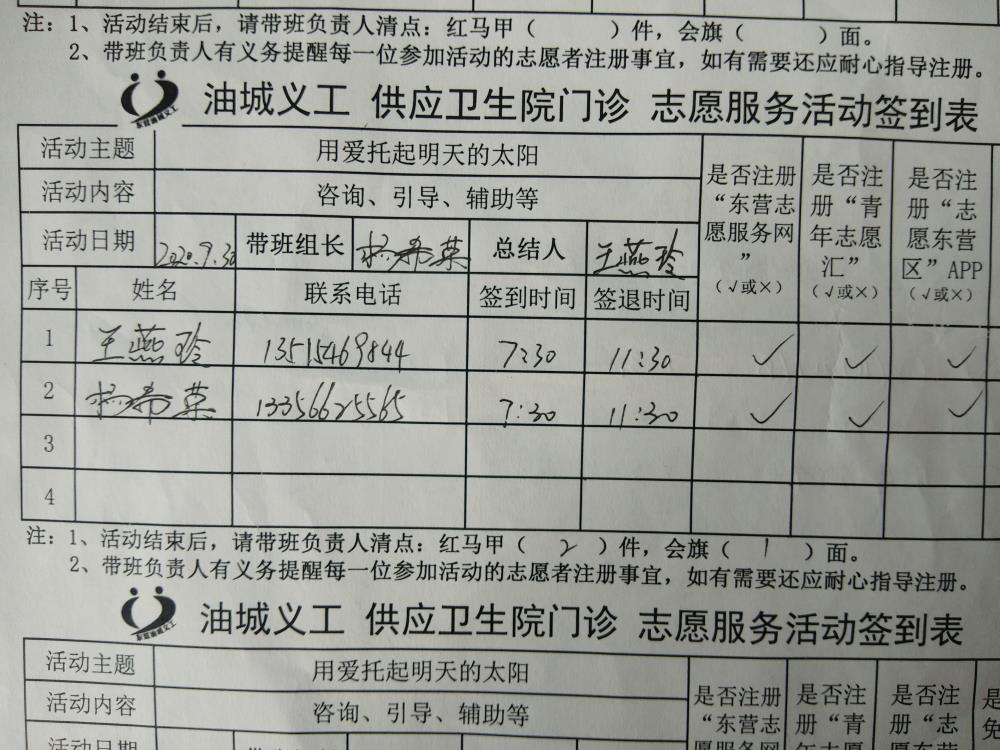 注：1、活动结束后，请带班负责人清点：红马甲（ ）件，会旗（ ）面。
2、带班负责人有义务提醒每一位参加活动的志愿者注册事宜，如有需要还应耐心指导注册。
东营油城义工
油城义工 供应卫生院门诊 志愿服务活动签到表
活动主题 用爱托起明天的太阳 是否注册“东营志愿服务网”（√或×） 是否注册“青年志愿汇”（√或×） 是否注册“志愿东营区”APP（√或×）
活动内容 咨询、引导、辅助等
活动日期 2020.9.30 带班组长 杨希荣 总结人 王燕玲
序号 姓名 联系电话 签到时间 签退时间
1 王燕玲 13515469844 7:30 11:30 ✓ ✓ ✓
2 杨希荣 13356625565 7:30 11:30 ✓ ✓ ✓
3
4
注：1、活动结束后，请带班负责人清点：红马甲（ 2 ）件，会旗（ 1 ）面。
2、带班负责人有义务提醒每一位参加活动的志愿者注册事宜，如有需要还应耐心指导注册。
东营油城义工
油城义工 供应卫生院门诊 志愿服务活动签到表
活动主题 用爱托起明天的太阳 是否注册“东营志 是否注册“青 是否注册“志 是
活动内容 咨询、引导、辅助等 免
活动日期